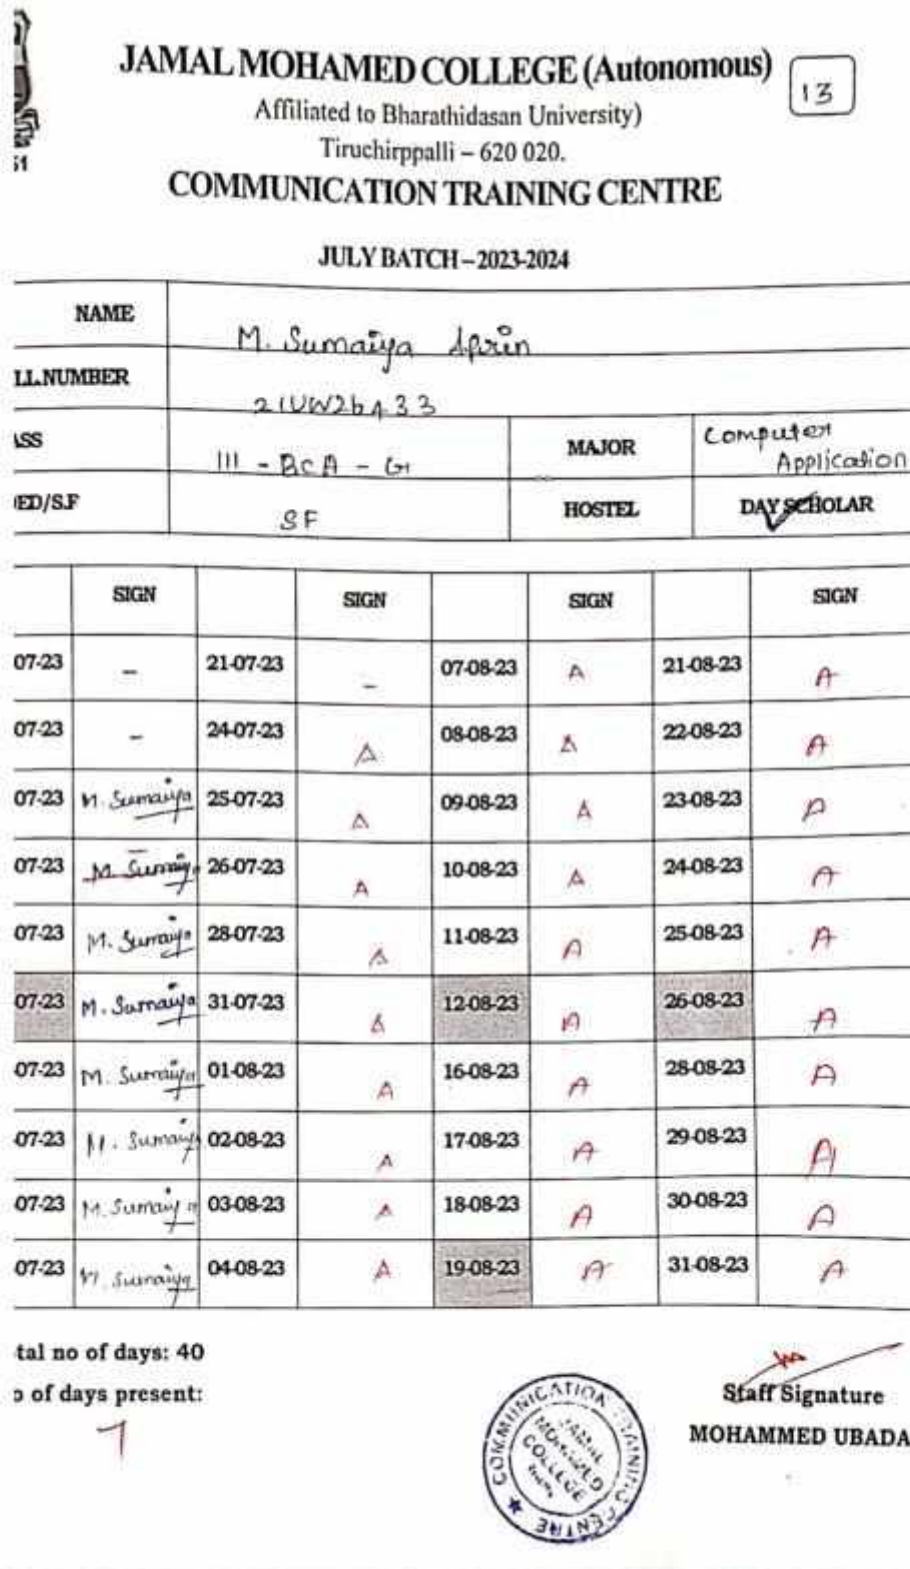 51
JAMAL MOHAMED COLLEGE (Autonomous)
13
Affiliated to Bharathidasan University)
Tiruchirppalli – 620 020.
COMMUNICATION TRAINING CENTRE
JULY BATCH – 2023-2024
NAME M. Sumaiya Afrin
LL.NUMBER 21UW26A33
ASS III - BCA - G MAJOR Computer Application
ED/S.F SF HOSTEL DAY SCHOLAR
SIGN SIGN SIGN SIGN
07-23 – 21-07-23 – 07-08-23 A 21-08-23 A
07-23 – 24-07-23 A 08-08-23 A 22-08-23 A
07-23 M. Sumaiya 25-07-23 A 09-08-23 A 23-08-23 A
07-23 M. Sumaiya 26-07-23 A 10-08-23 A 24-08-23 A
07-23 M. Sumaiya 28-07-23 A 11-08-23 A 25-08-23 A
07-23 M. Sumaiya 31-07-23 A 12-08-23 A 26-08-23 A
07-23 M. Sumaiya 01-08-23 A 16-08-23 A 28-08-23 A
07-23 M. Sumaiya 02-08-23 A 17-08-23 A 29-08-23 A
07-23 M. Sumaiya 03-08-23 A 18-08-23 A 30-08-23 A
07-23 M. Sumaiya 04-08-23 A 19-08-23 A 31-08-23 A
tal no of days: 40
o of days present:
7
Staff Signature
MOHAMMED UBADA
COMMUNICATION TRAINING CENTRE
JAMAL
MOHAMED
COLLEGE